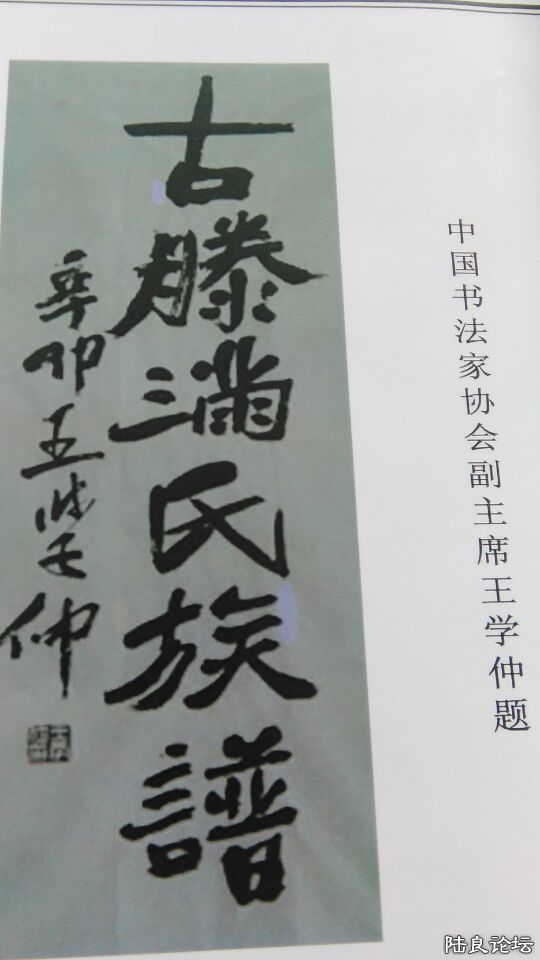 中国书法家协会副主席王学仲题
古滕满氏族譜
辛卯王学仲
陆良论坛